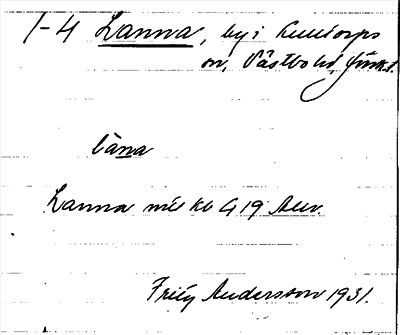 1-4 Lanna, by i Kulltorps
sn, Västbo hd, Jönk.l.
làna
Lanna mil kb G 19 Auv.
Fritz Andersson 1931.